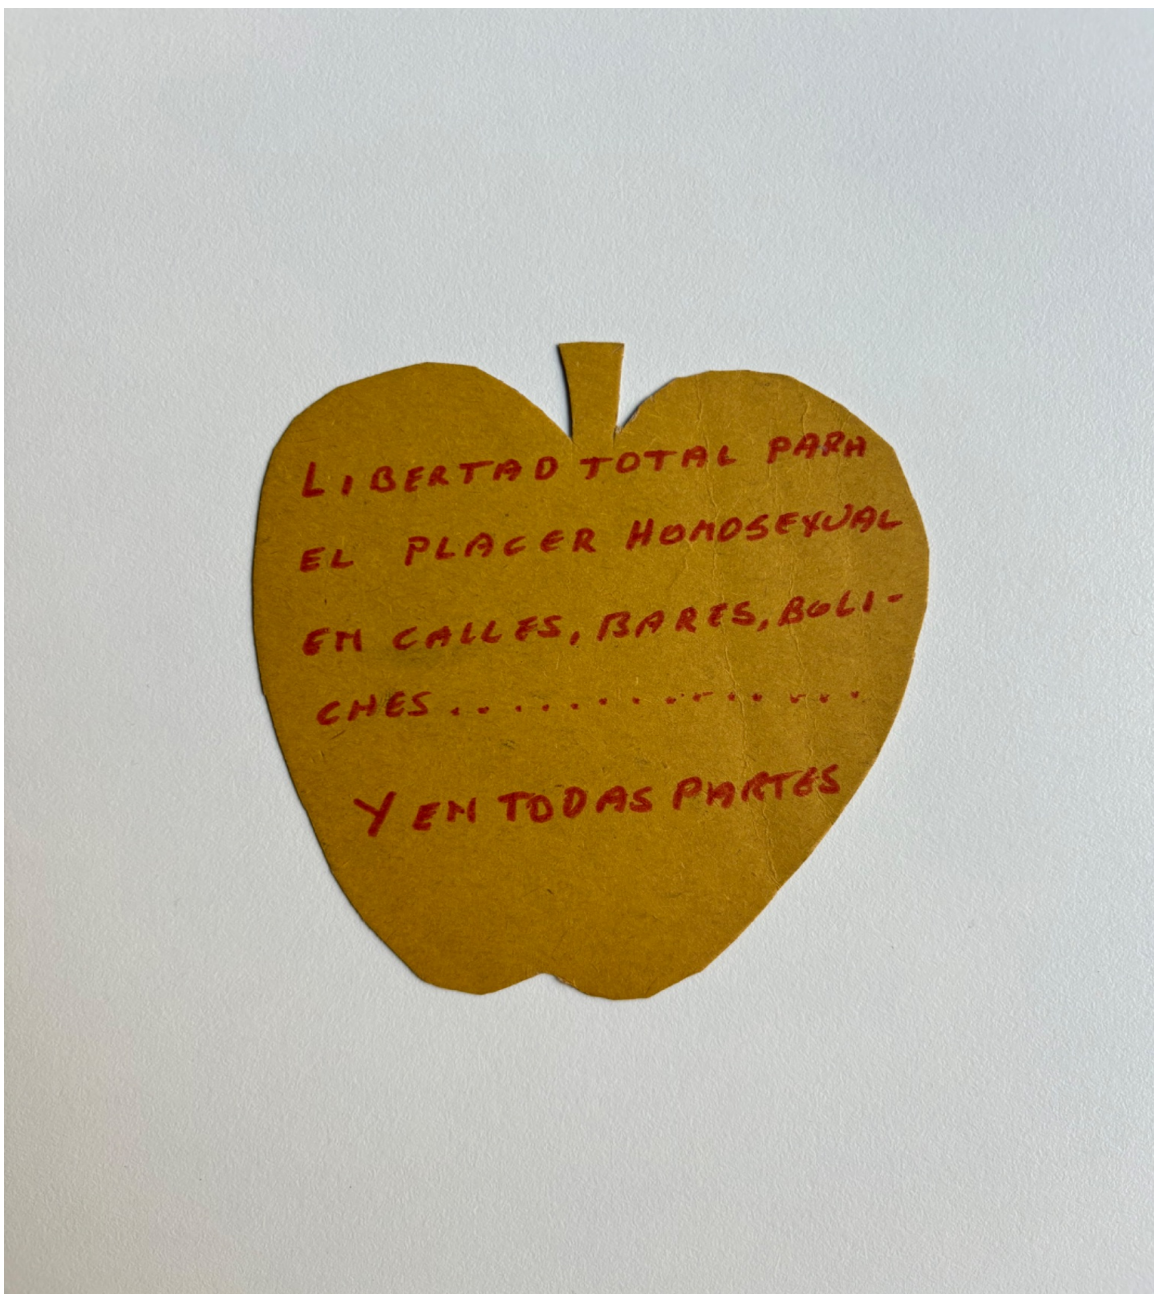 LIBERTAD TOTAL PARA
EL PLACER HOMOSEXUAL
EN CALLES, BARES, BOLI-
CHES...............
Y EN TODAS PARTES